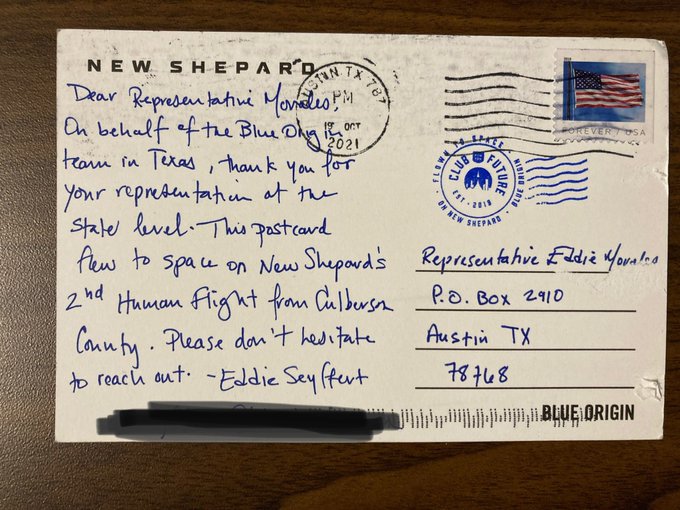 NEW SHEPARD
Dear Representative Morales,
On behalf of the Blue Origin
team in Texas, thank you for
your representation at the
state level. This postcard
flew to space on New Shepard's
2nd Human flight from Culberson
County. Please don't hesitate
to reach out. - Eddie Seyffert
AUSTIN TX 787
PM
19 OCT
2021
FOREVER / USA
FLOWN TO SPACE
ON NEW SHEPARD
BLUE ORIGIN
CLUB FUTURE
EST - 2019
Representative Eddie Morales
P.O. Box 2910
Austin TX
78768
BLUE ORIGIN